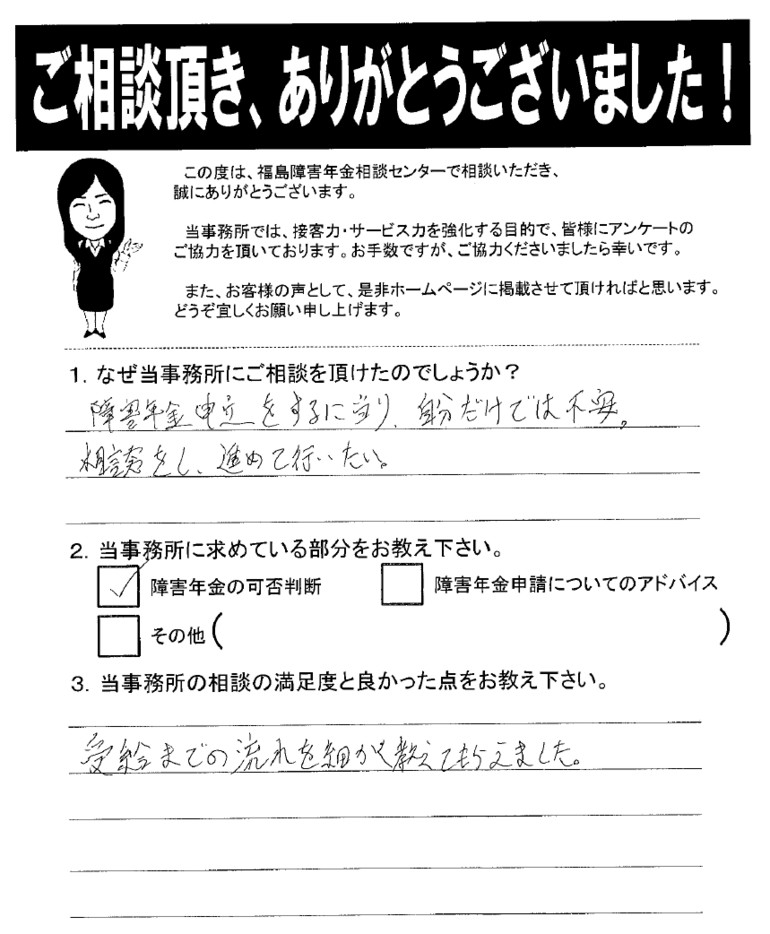 ご相談頂き、ありがとうございました！
この度は、福島障害年金相談センターで相談いただき、
誠にありがとうございます。
当事務所では、接客力・サービス力を強化する目的で、皆様にアンケートの
ご協力を頂いております。お手数ですが、ご協力くださいましたら幸いです。
また、お客様の声として、是非ホームページに掲載させて頂ければと思います。
どうぞ宜しくお願い申し上げます。
1. なぜ当事務所にご相談を頂けたのでしょうか？
障害年金申立をするに当り、自分だけでは不安。
相談をし、進めて行いたい。
2. 当事務所に求めている部分をお教え下さい。
✓ 障害年金の可否判断 □ 障害年金申請についてのアドバイス
□ その他（ ）
3. 当事務所の相談の満足度と良かった点をお教え下さい。
受給までの流れを細かく教えてもらえました。